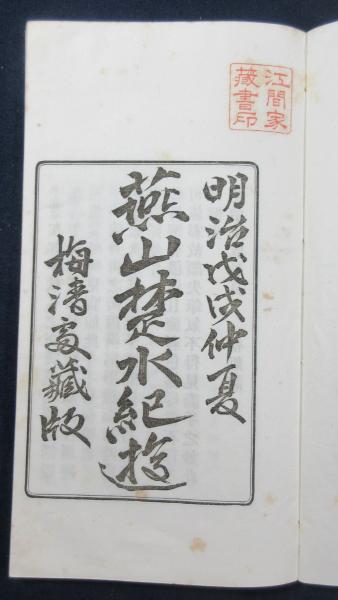 江間家
藏書印
明治戊戌仲夏
燕山楚水紀遊
梅清處藏版